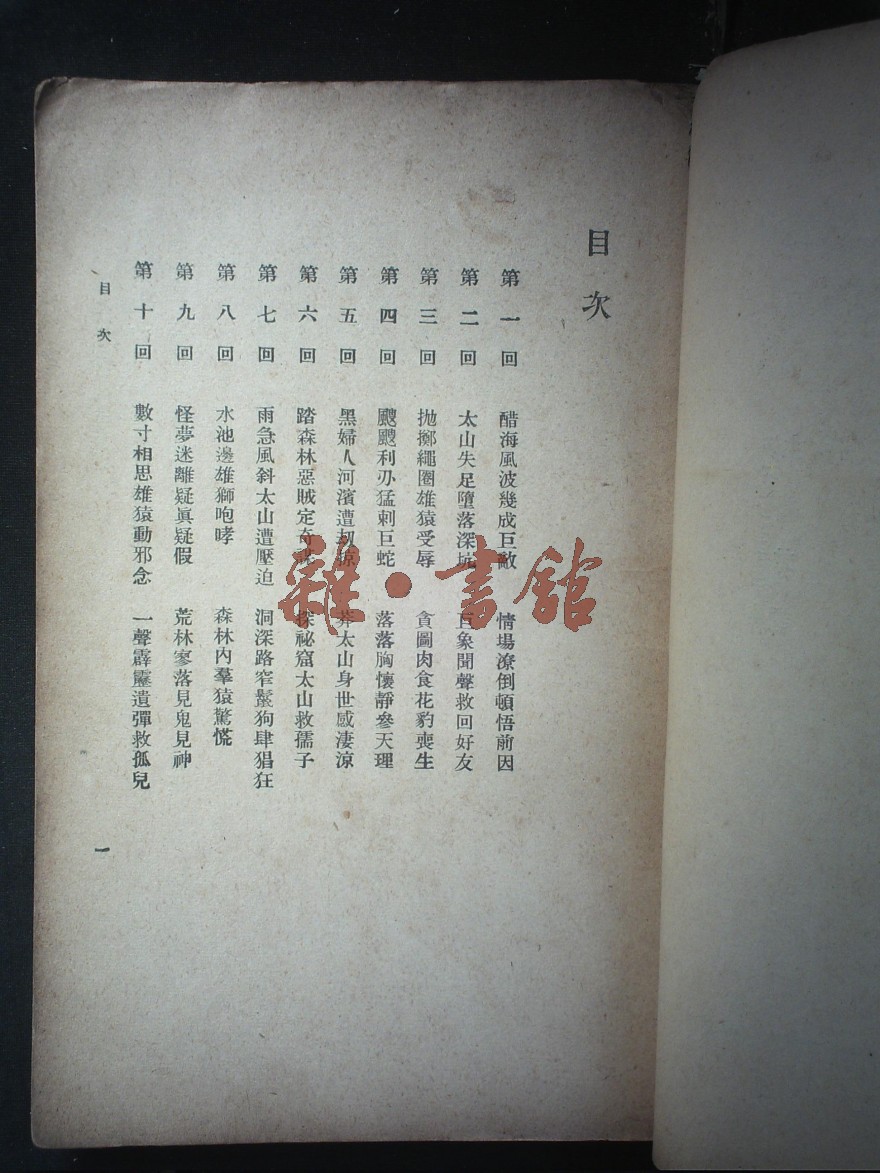 目次
第一回 醋海風波幾成巨敵 情場潦倒頓悟前因
第二回 太山失足墮落深坑 巨象聞聲救回好友
第三回 拋擲繩圈雄猿受辱 貪圖肉食花豹喪生
第四回 颼颼利刃猛刺巨蛇 落落胸懷靜參天理
第五回 黑婦人河濱遭劫掠 莽太山身世感淒涼
第六回 踏森林惡賊定奇 探祕窟太山救孺子
第七回 雨急風斜太山遭壓迫 洞深路窄鬣狗肆猖狂
第八回 水池邊雄獅咆哮 森林內羣猿驚慌
第九回 怪夢迷離疑眞疑假 荒林寥落見鬼見神
第十回 數寸相思雄猿動邪念 一聲霹靂遺彈救孤兒
目次
一
雜·書館